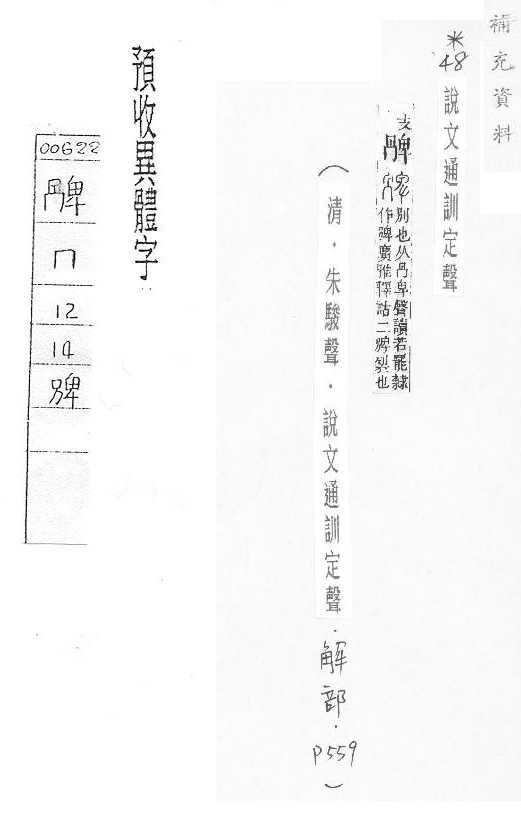 補充資料
*
48
說文通訓定聲
別也从冎卑聲讀若罷隸
作碑廣雅釋詁二牌裂也
(清.朱駿聲.說文通訓定聲.解部.P559)
預收異體字
00622
冂
12
14